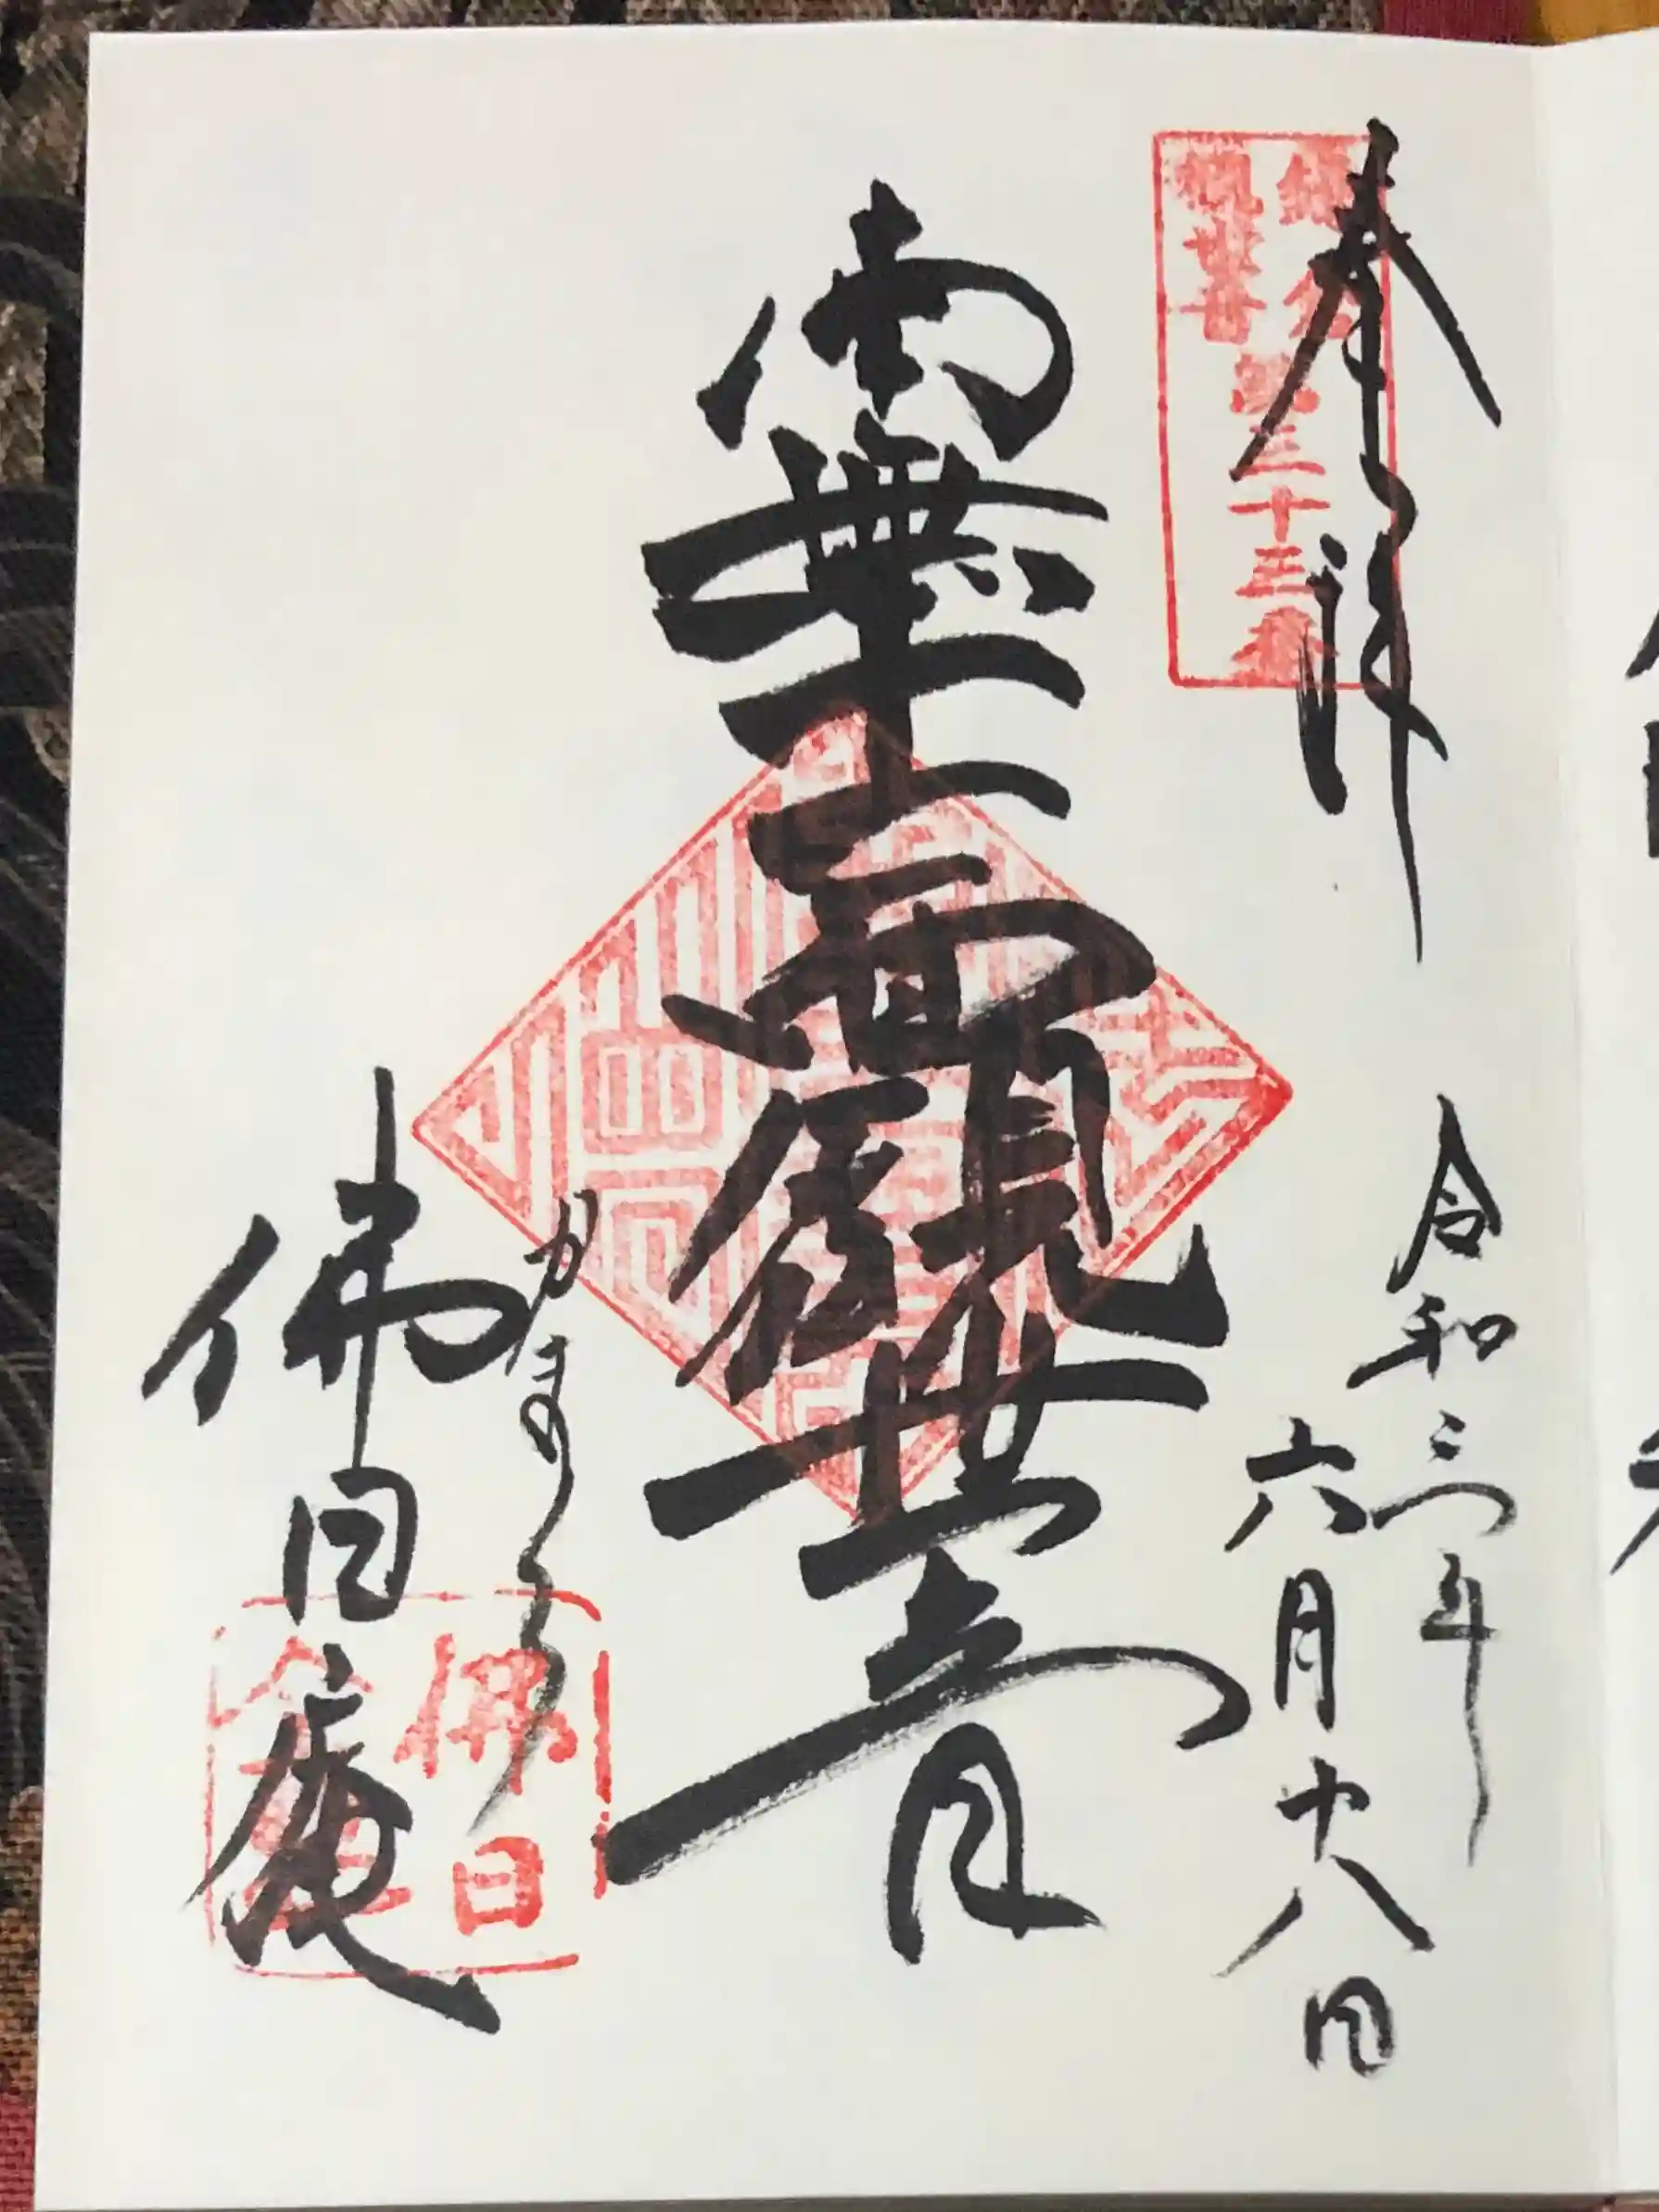 奉拝
鎌倉
観世音
第三十三番
令和三年
六月十八日
南無十一面觀世音
かまくら
佛日庵
佛日